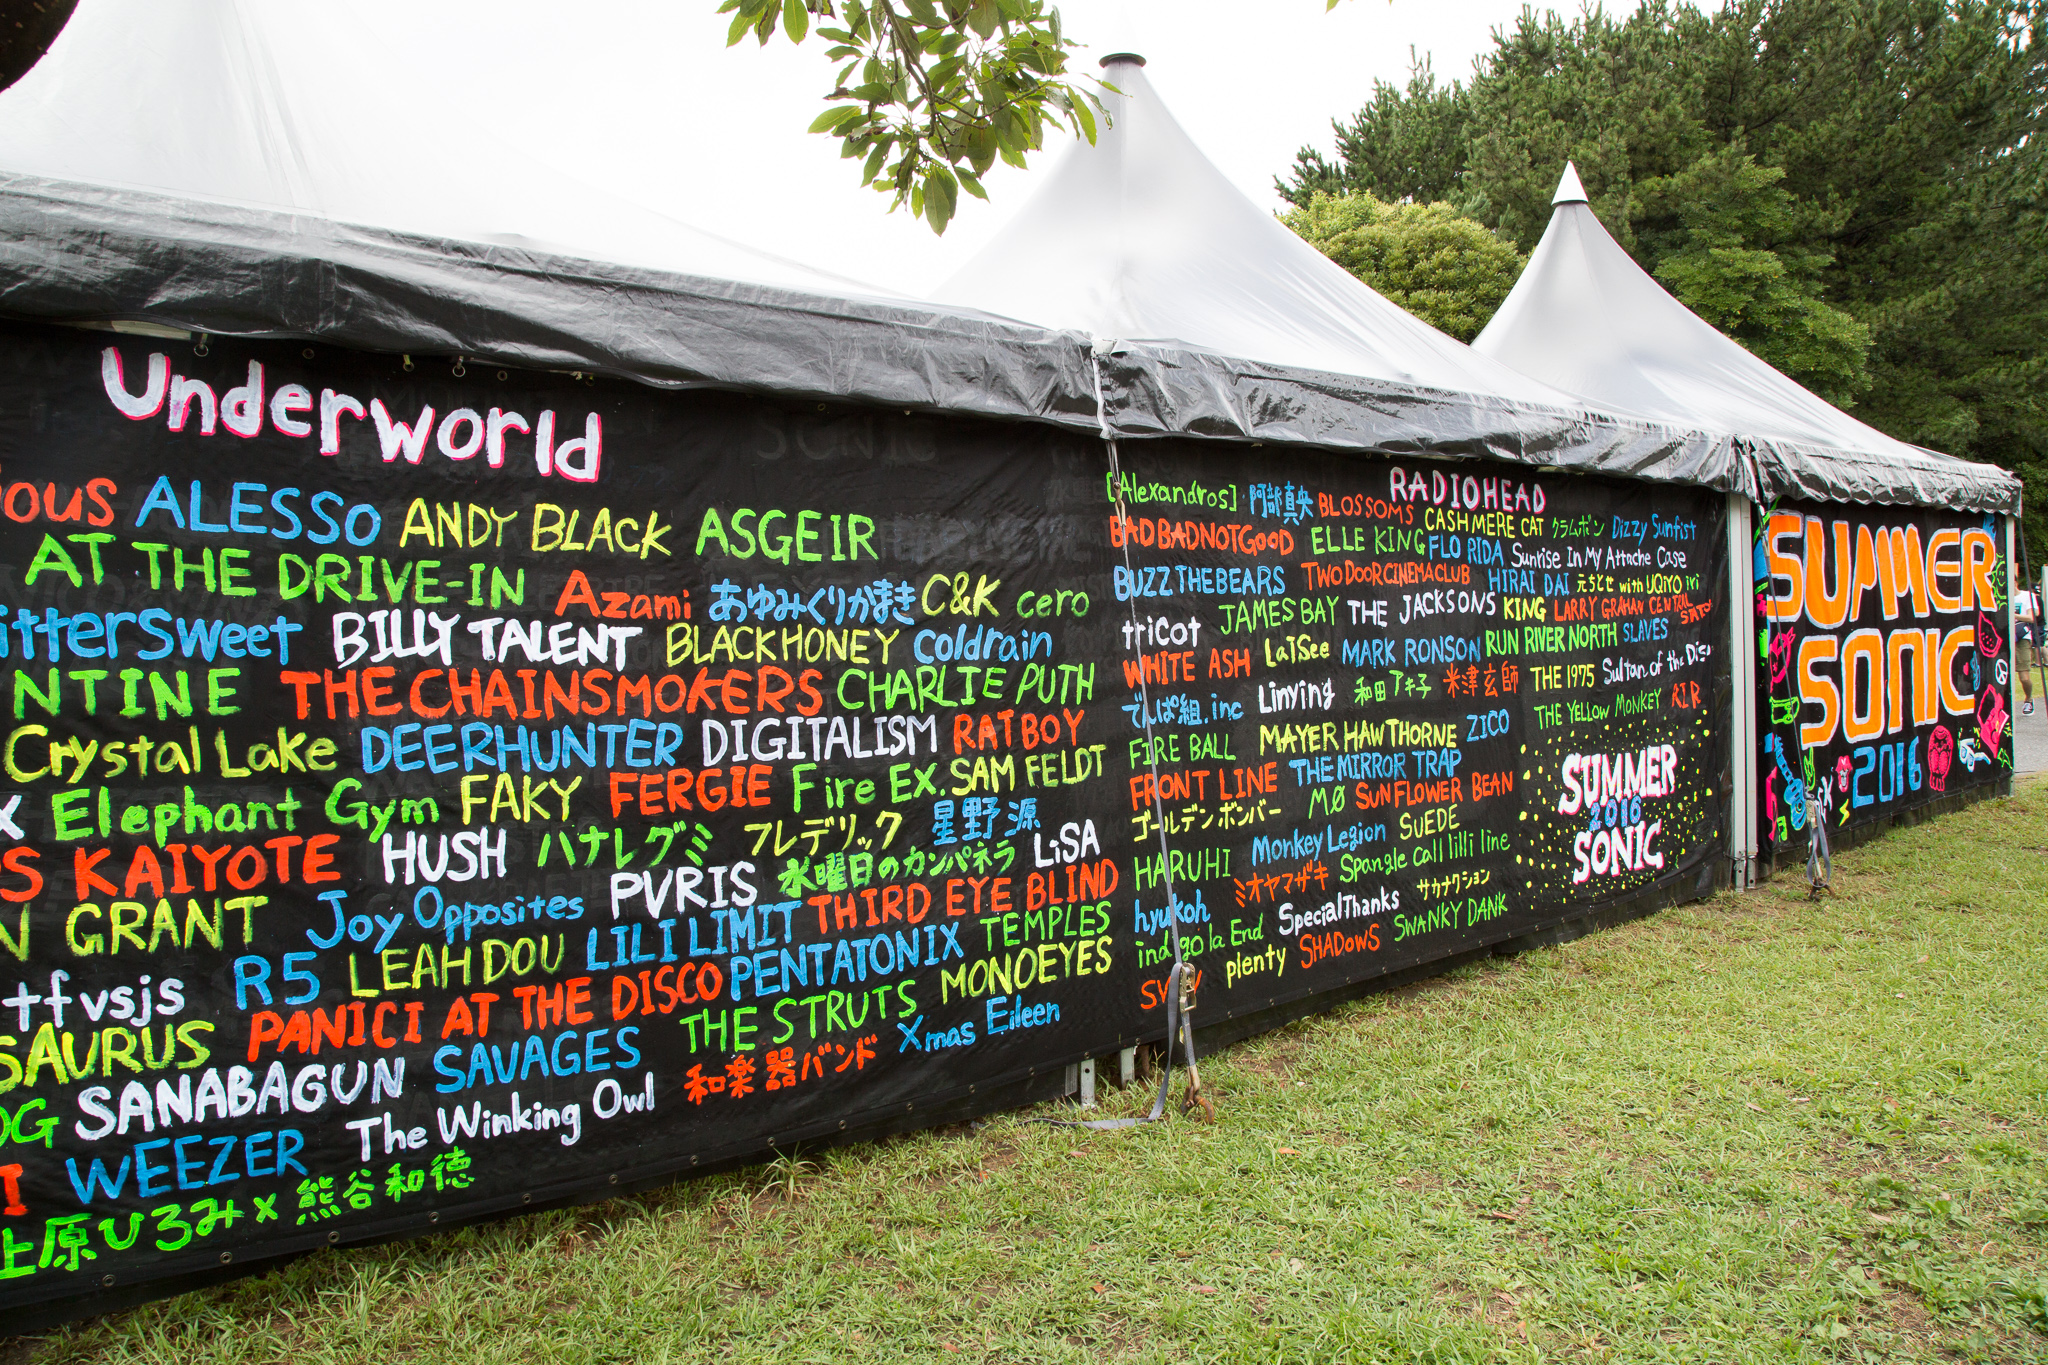 Underworld
ious ALESSO ANDY BLACK ASGEIR
AT THE DRIVE-IN Azami あゆみくりかまき C&K cero
itterSweet BILLY TALENT BLACKHONEY coldrain
NTINE THE CHAINSMOKERS CHARLIE PUTH
Crystal Lake DEERHUNTER DIGITALISM RAT BOY
X Elephant Gym FAKY FERGIE Fire Ex. SAM FELDT
S KAIYOTE HUSH ハナレグミ フレデリック 星野源
N GRANT Joy Opposites PVRIS 水曜日のカンパネラ LiSA
tfvsjs R5 LEAH DOU LILI LIMIT THIRD EYE BLIND
SAURUS PANIC! AT THE DISCO PENTATONIX TEMPLES
OG SANABAGUN SAVAGES THE STRUTS MONOEYES
I WEEZER The Winking Owl 和楽器バンド Xmas Eileen
上原ひろみ x 熊谷和徳
RADIOHEAD
[Alexandros] 阿部真央 BLOSSOMS CASHMERE CAT クラムボン Dizzy Sunfist
BADBADNOTGOOD ELLE KING FLO RIDA Sunrise In My Attache Case
BUZZ THE BEARS TWO DOOR CINEMA CLUB HIRAI DAI えちぜん with UQiYO iri
tricot JAMES BAY THE JACKSONS KING LARRY GRAHAM CENTRAL STO
WHITE ASH LAISee MARK RONSON RUN RIVER NORTH SLAVES
でんぱ組.inc Linying 和田アキ子 米津玄師 THE 1975 Sultan of the Dis
FIRE BALL MAYER HAWTHORNE ZICO THE YELLOW MONKEY RIR
FRONT LINE THE MIRROR TRAP
ゴールデンボンバー MØ SUNFLOWER BEAN
HARUHI Monkey Legion SUEDE
hyukoh ミオヤマザキ Spangle call lilli line
indigo la End SpecialThanks サカナクション
plenty SHADOWS SWANKY DANK
SUMMER
2016
SONIC
SUMMER
SONIC
2016